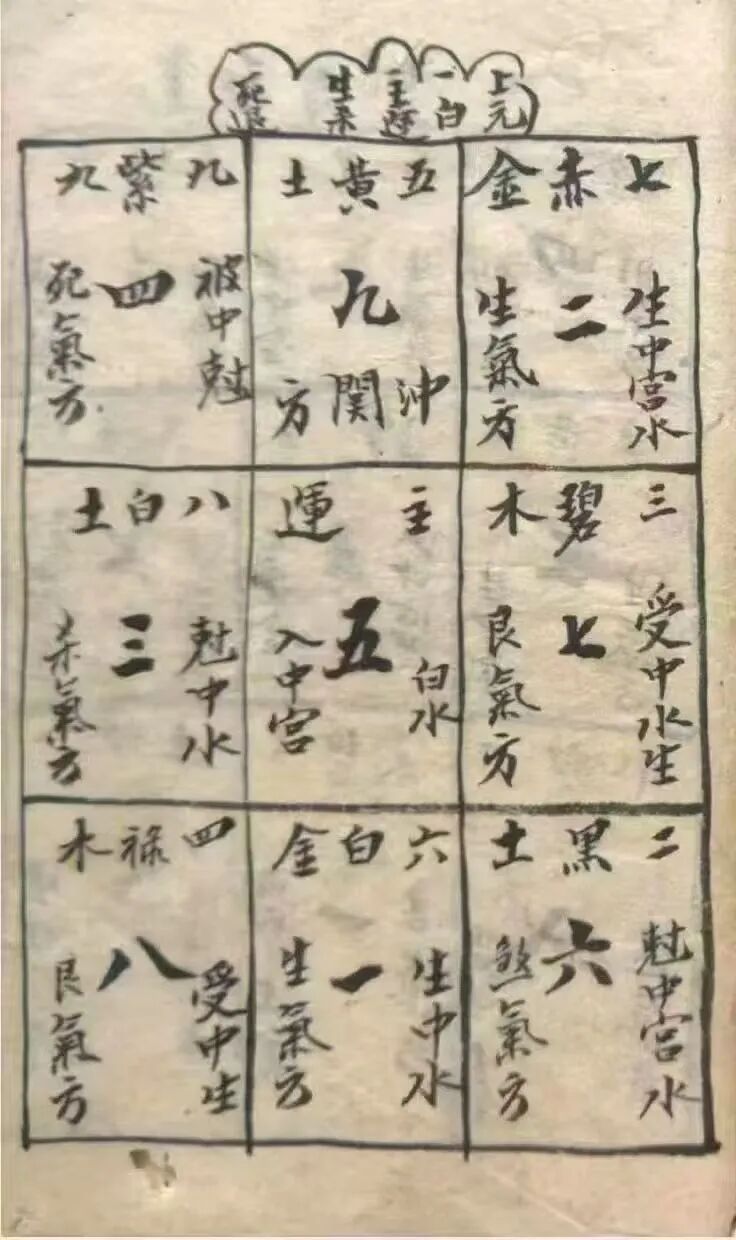 上元
一白
主运
生杀
死退
七赤金
生中宮水
二
生氣方
五黃土
九
冲関方
九紫九
被中尅
四
死氣方
三碧木
受中水生
七
艮氣方
主運
白水
五
入中宮
八白土
尅中水
三
杀氣方
二黑土
尅中宮水
六
煞氣方
六白金
生中水
一
生氣方
四禄木
受中生
八
艮氣方